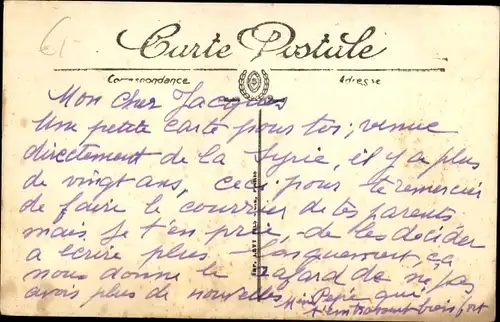 Carte Postale
Correspondance
Adresse
Mon cher Jacques
Une petite carte pour toi, venue
directement de la Syrie, il y a plus
de vingt ans, ceci pour te remercier
de faire le courrier de tes parents
mais je t'en prie, de les décider
a ecrire plus longuement, ça
nous donne le de ne pas
avoir plus de nouvelles. Pépé qui
t'embrassent bien fort